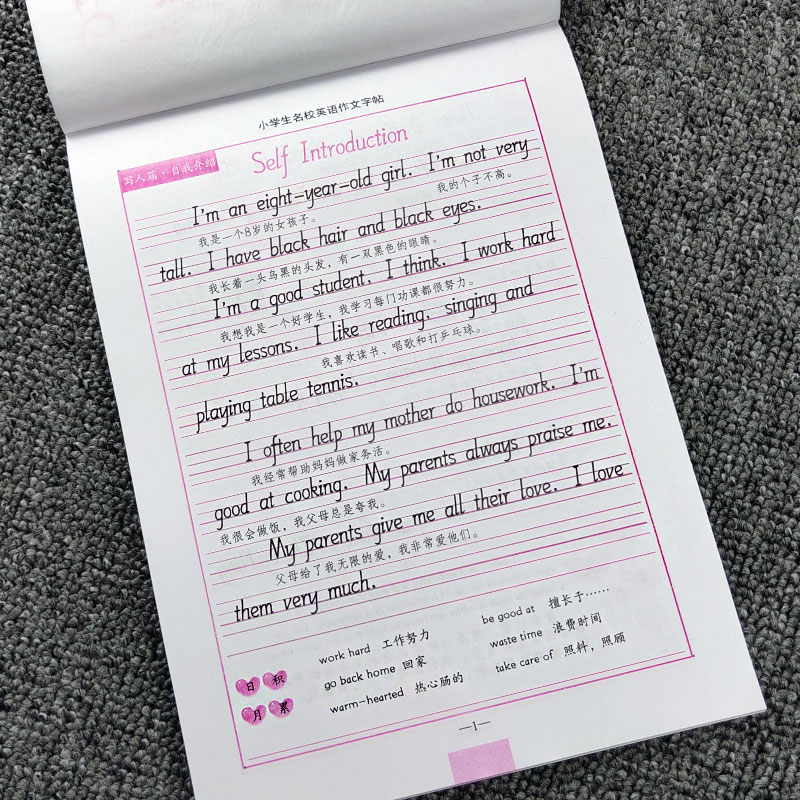 小学生名校英语作文字帖
写人篇·自我介绍
Self Introduction
I'm an eight-year-old girl. I'm not very
我是一个8岁的女孩子。 我的个子不高。
tall. I have black hair and black eyes.
我长着一头乌黑的头发，有一双黑色的眼睛。
I'm a good student, I think. I work hard
我想我是一个好学生，我学习每门功课都很努力。
at my lessons. I like reading, singing and
我喜欢读书、唱歌和打乒乓球。
playing table tennis.
I often help my mother do housework. I'm
我经常帮助妈妈做家务活。
good at cooking. My parents always praise me.
我很会做饭，我父母总是夸我。
My parents give me all their love. I love
父母给了我无限的爱，我非常爱他们。
them very much.
日积月累
work hard 工作努力
be good at 擅长于……
go back home 回家
waste time 浪费时间
warm-hearted 热心肠的
take care of 照料，照顾
—1—